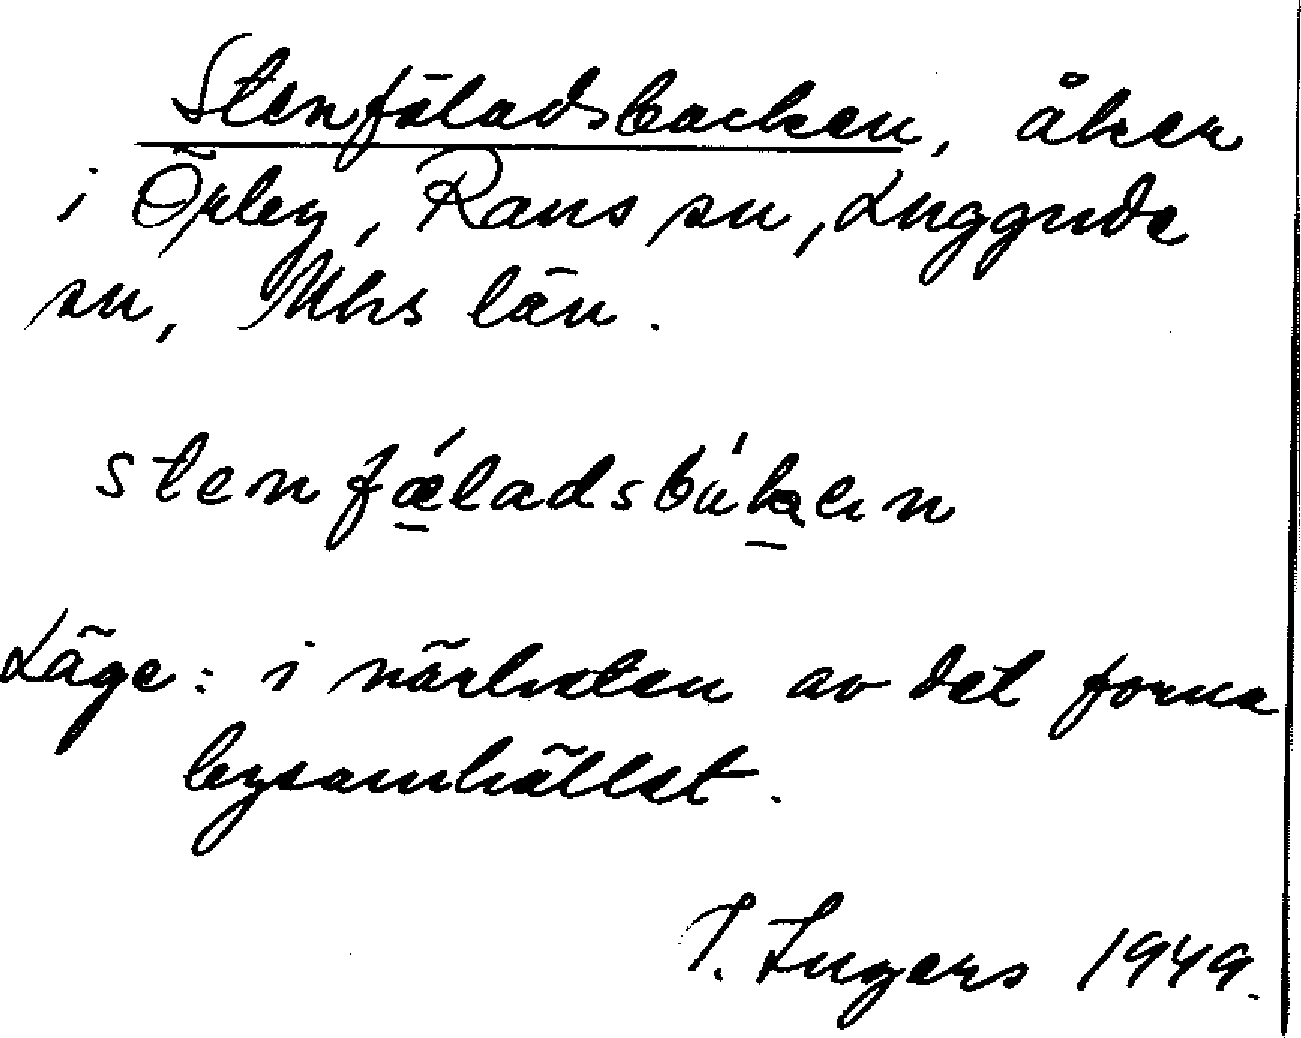 Stenfäladsbacken, åker
i Örby, Raus sn, Luggude
sn, Mhs län.
stenfǽladsbákan
Läge: i närheten av det forna
bysamhället.
I. Ingers 1949.